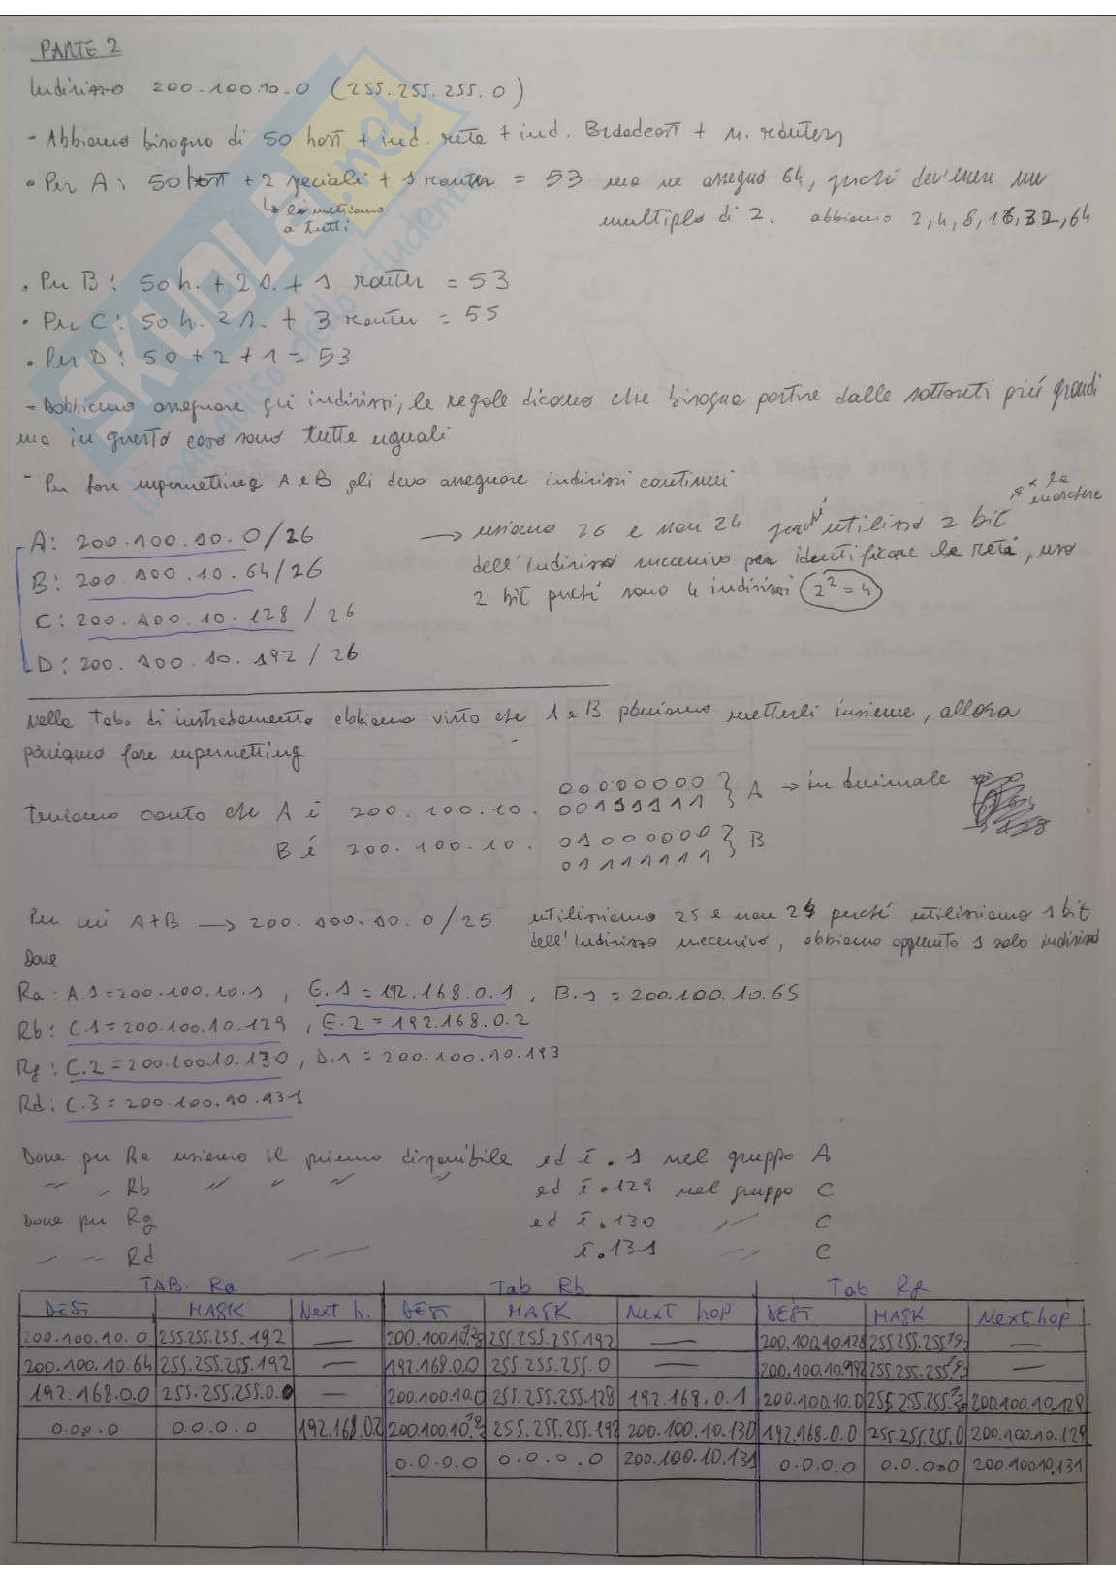 PARTE 2
Indirizzo 200.100.10.0 (255.255.255.0)
- Abbiamo bisogno di 50 host + ind. rete + ind. Broadcast + n. routers
• Per A: 50 host + 2 speciali + 1 router = 53 ma ne assegno 64, perché dev'essere un
↳ li mettiamo a tutti
multiplo di 2. abbiamo 2,4,8,16,32,64
• Per B: 50h. + 2 s. + 1 router = 53
• Per C: 50h. 2 s. + 3 router = 55
• Per D: 50 + 2 + 1 = 53
- Dobbiamo assegnare gli indirizzi, le regole dicono che bisogna partire dalle sottoreti più grandi
ma in questo caso sono tutte uguali
- Per fare supernetting A e B gli devo assegnare indirizzi continui
A: 200.100.10.0/26
→ usiamo 26 e non 24 perché utilizzo 2 bit
* la maschera
B: 200.100.10.64/26
dell'indirizzo successivo per identificare la rete, uso
2 bit perché sono 4 indirizzi 2² = 4
C: 200.100.10.128/26
D: 200.100.10.192/26
Nella tab. di instradamento abbiamo visto che A e B possiamo metterli insieme, allora
possiamo fare supernetting
00000000 } A → in binario
Teniamo conto che A è 200.100.10. 00111111
B è 200.100.10. 01000000 } B
01111111
Per cui A+B → 200.100.10.0/25 utilizziamo 25 e non 24 perché utilizziamo 1 bit
dell'indirizzo successivo, abbiamo appunto 1 solo indirizzo
Dove
Ra: A.1 = 200.100.10.1, E.1 = 192.168.0.1, B.1 = 200.100.10.65
Rb: C.1 = 200.100.10.129, E.2 = 192.168.0.2
Rg: C.2 = 200.100.10.130, D.1 = 200.100.10.193
Rd: C.3 = 200.100.10.131
Dove per Ra usiamo il primo disponibile ed è .1 nel gruppo A
" " Rb " " " " ed è .129 nel gruppo C
Dove per Rg ed è .130 " C
" " Rd " " è .131 " C
TAB. Ra Tab Rb Tab Rg
DEST MASK Next h. DEST MASK Next hop DEST MASK Next hop
200.100.10.0 255.255.255.192 — 200.100.10.128 255.255.255.192 — 200.100.10.128 255.255.255.192 —
200.100.10.64 255.255.255.192 — 192.168.0.0 255.255.255.0 — 200.100.10.192 255.255.255.192 —
192.168.0.0 255.255.255.0 — 200.100.10.0 255.255.255.128 192.168.0.1 200.100.10.0 200.100.10.129
0.0.0.0 0.0.0.0 192.168.0.2 200.100.10.192 255.255.255.192 200.100.10.130 192.168.0.0 255.255.255.0 200.100.10.129
0.0.0.0 0.0.0.0 200.100.10.131 0.0.0.0 0.0.0.0 200.100.10.131
SKUOLA.net